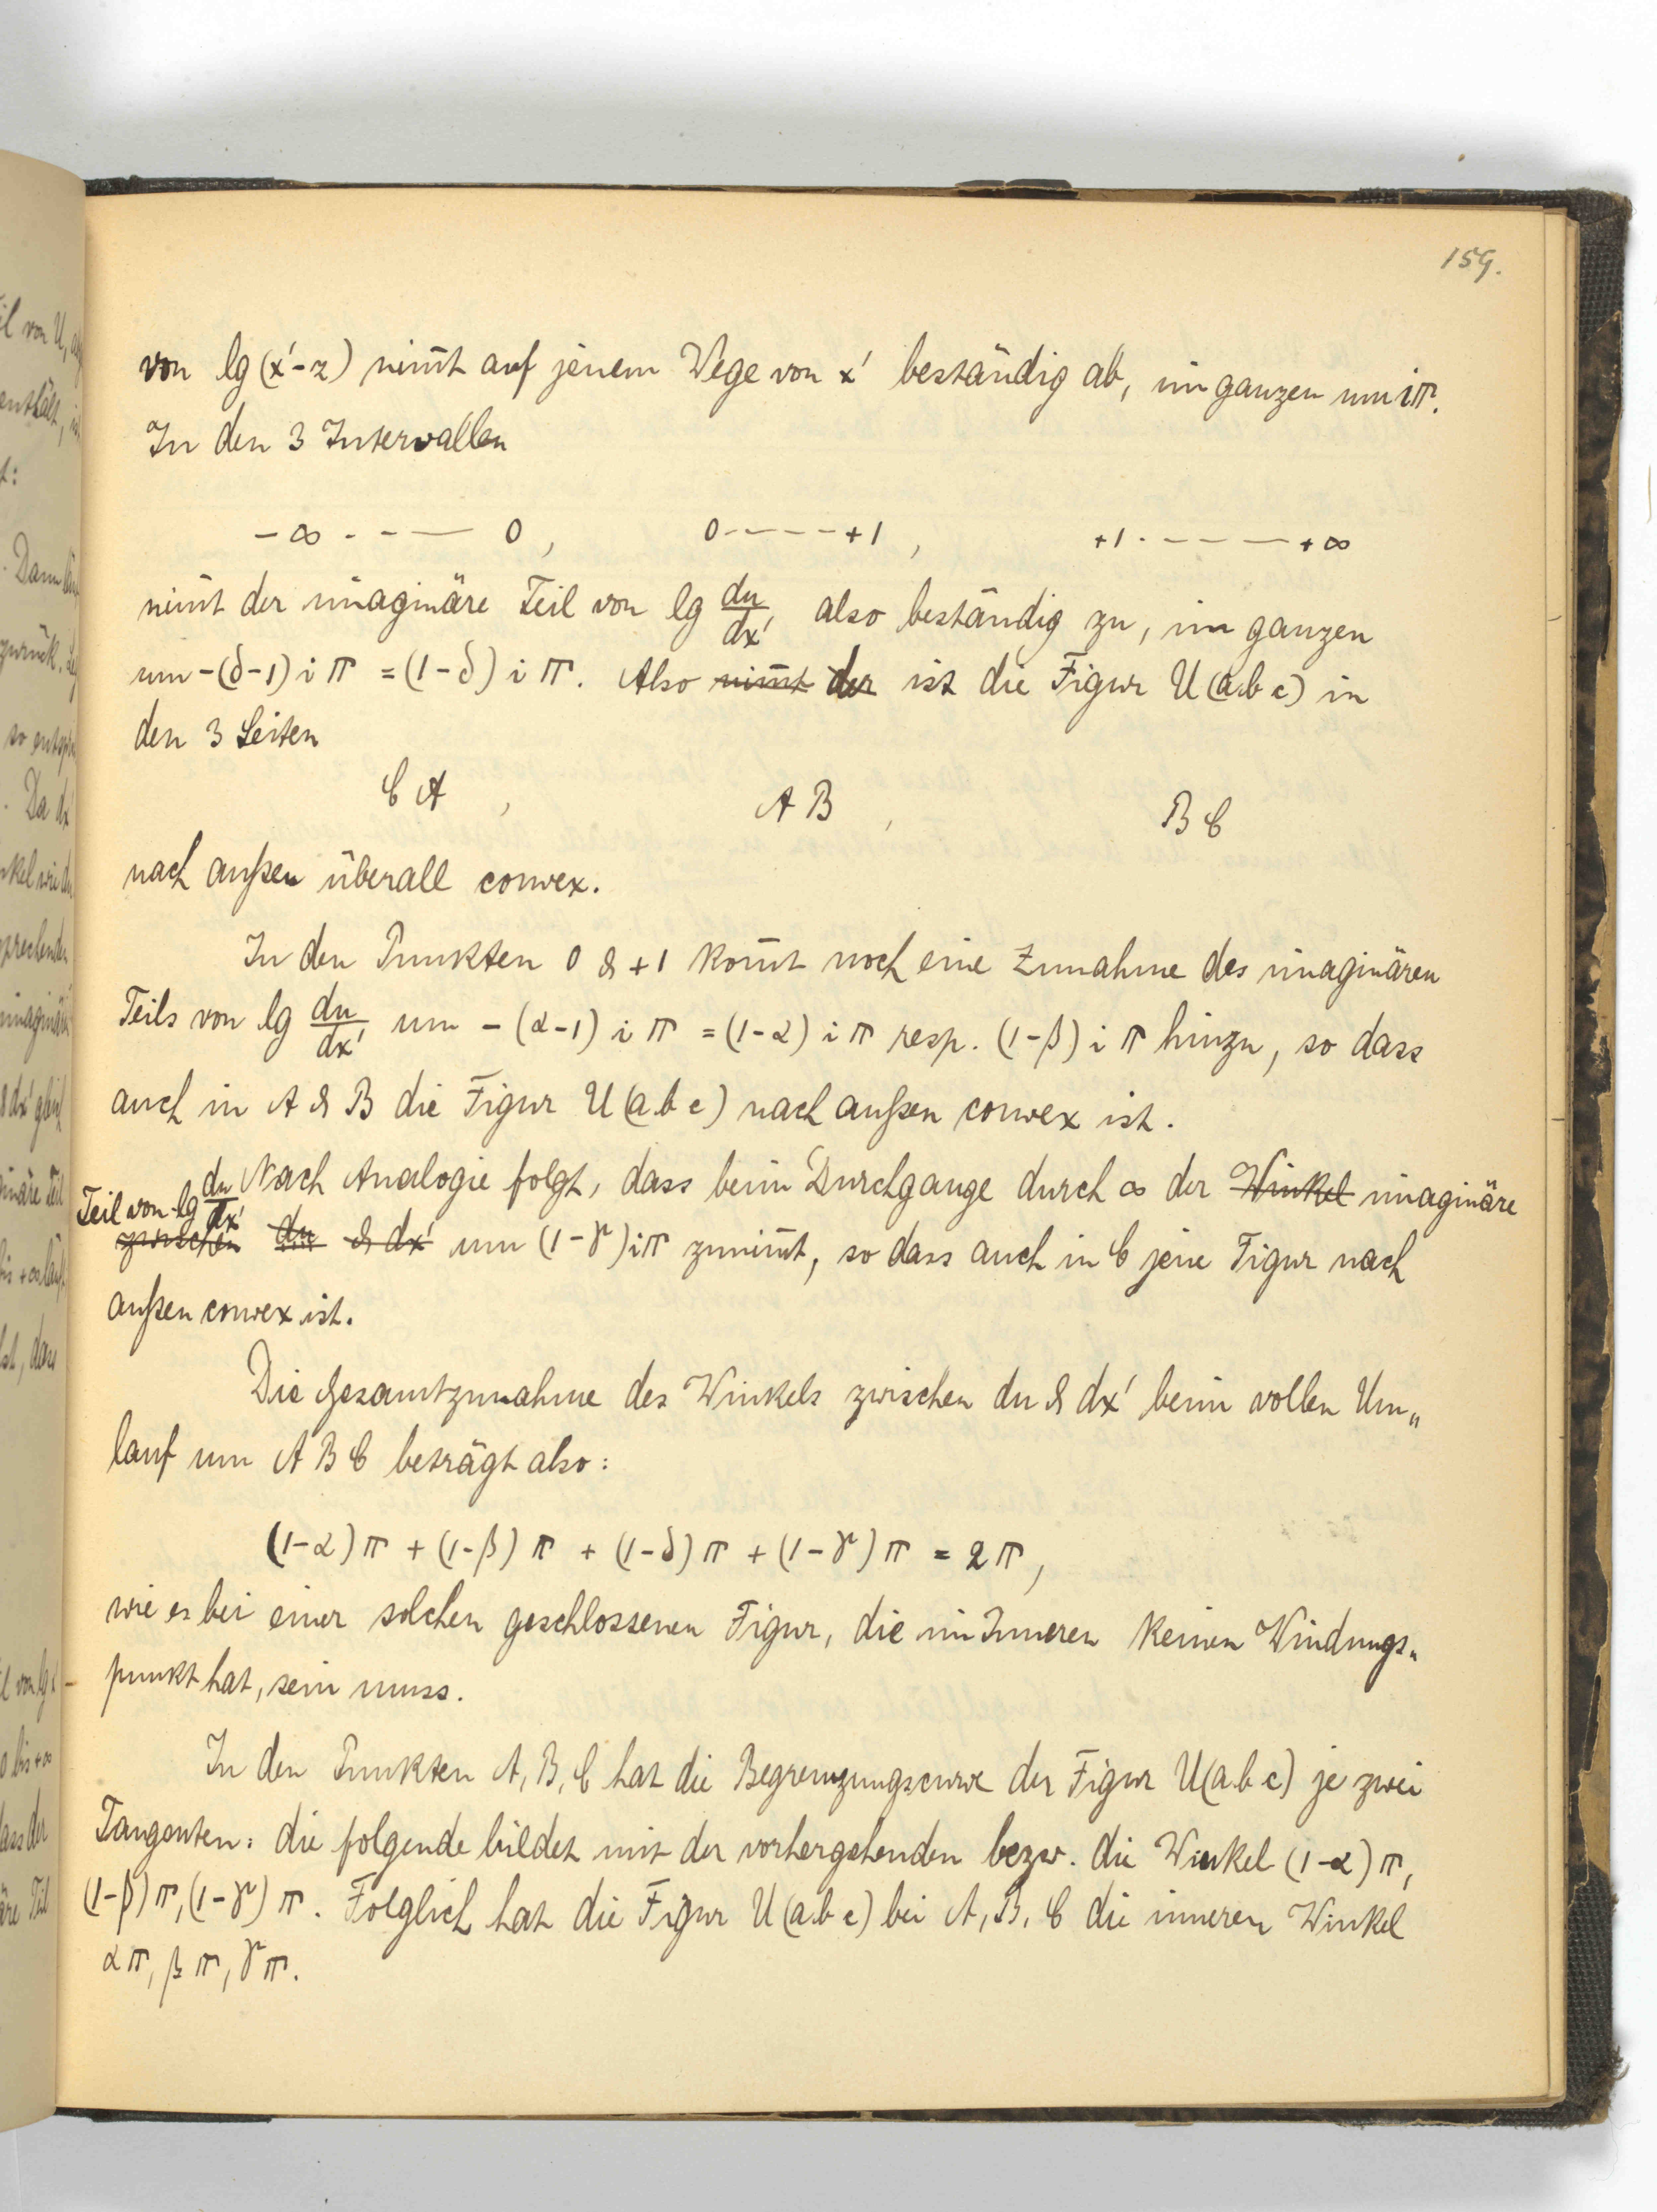 159.
von lg (x'-z) nim̅t auf jenem Wege von x' beständig ab, im ganzen um iπ.
In den 3 Intervallen
-∞ - - — 0 , 0 - - - - +1 , +1 - - - - +∞
nim̅t der imaginäre Teil von lg du/dx', also beständig zu, im ganzen
um -(δ-1) i π = (1-δ) i π. Also nim̅t der ist die Figur U (a b c) in
den 3 Seiten
C A , A B , B C
nach außen überall convex.
In den Punkten 0 & +1 kom̅t noch eine Zunahme des imaginären
Teils von lg du/dx' um - (α-1) i π = (1-α) i π resp. (1-β) i π hinzu, so dass
auch in A & B die Figur U (a b c) nach außen convex ist.
Nach Analogie folgt, dass beim Durchgange durch ∞ der Winkel imaginäre
Teil von lg du/dx'
zwischen du & dx' um (1-γ) iπ zunim̅t, so dass auch in C jene Figur nach
außen convex ist.
Die Gesamtzunahme des Winkels zwischen du & dx' beim vollen Um„
lauf um A B C beträgt also:
(1-α) π + (1-β) π + (1-δ) π + (1-γ) π = 2 π,
wie es bei einer solchen geschlossenen Figur, die im Inneren keinen Windungs„
punkt hat, sein muss.
In den Punkten A, B, C hat die Begrenzungscurve der Figur U (a b c) je zwei
Tangenten: die folgende bildet mit der vorhergehenden bezw. die Winkel (1-α) π,
(1-β) π, (1-γ) π. Folglich hat die Figur U (a b c) bei A, B, C die inneren Winkel
α π, β π, γ π.